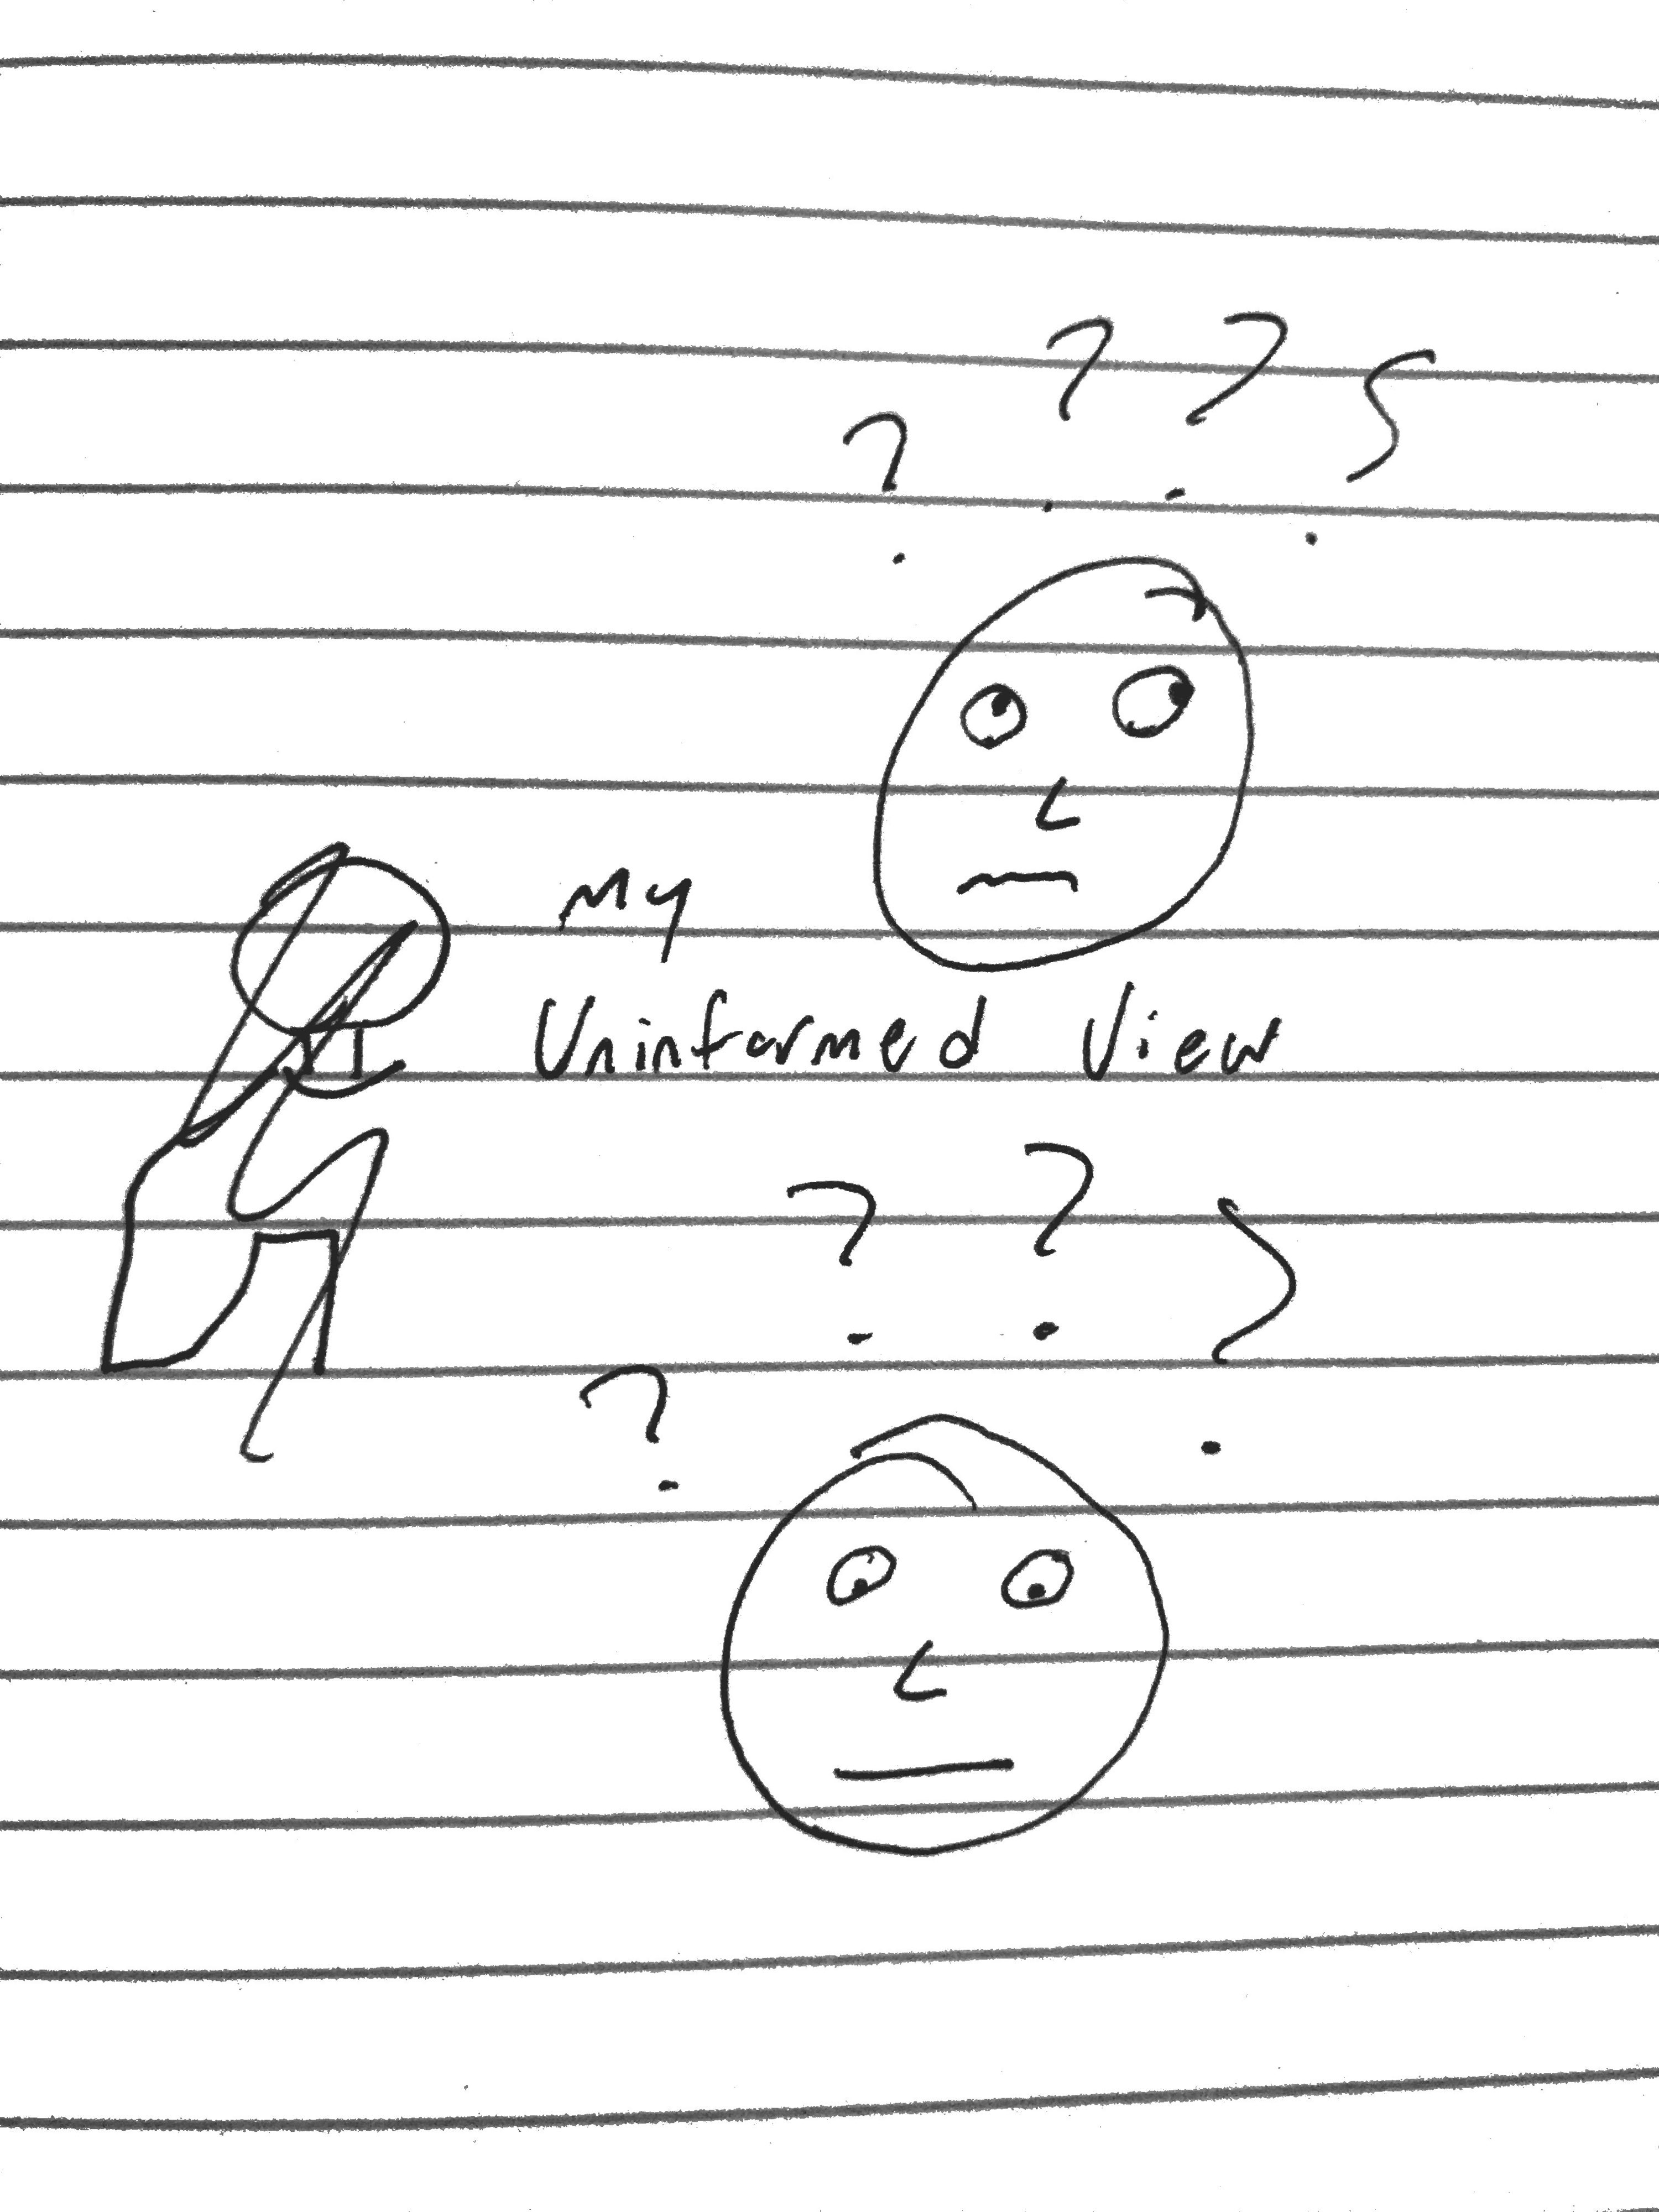 ? ? ? ?
My
Uninformed View
? ? ? ?